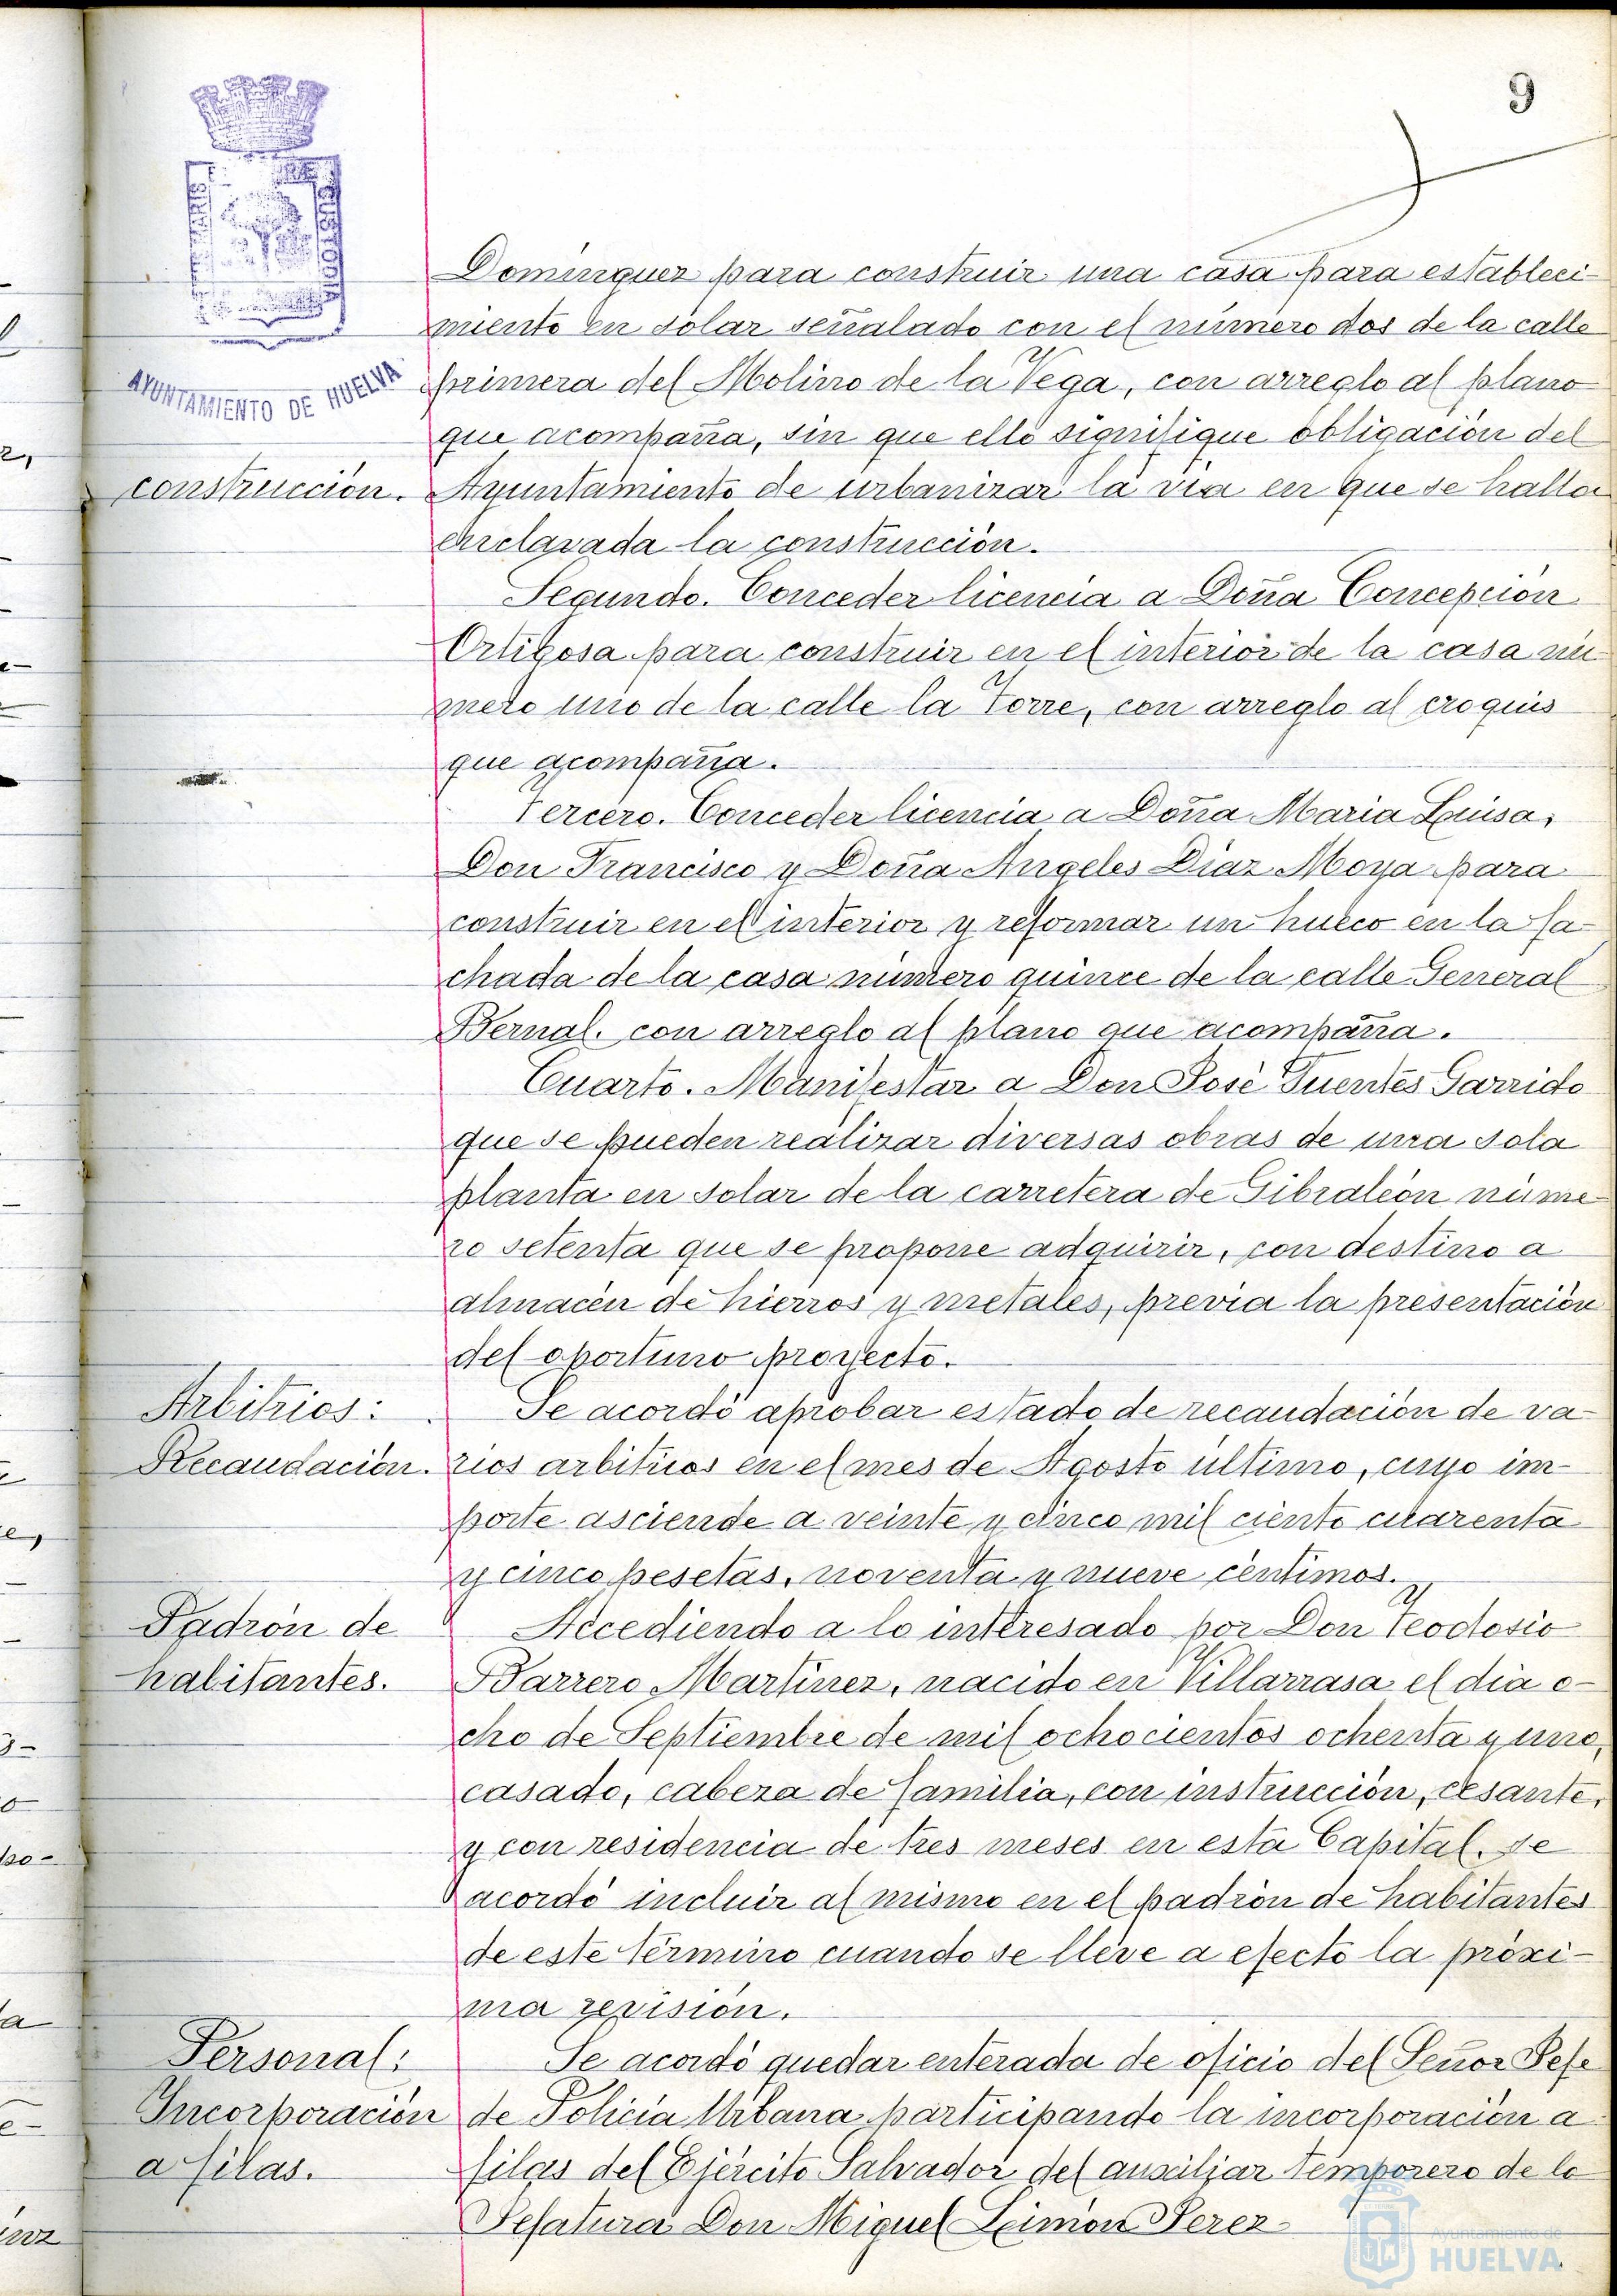 9
AYUNTAMIENTO DE HUELVA
Dominguez para construir una casa para estableci-
miento en solar señalado con el número dos de la calle
primera del Molino de la Vega, con arreglo al plano
que acompaña, sin que ello signifique obligación del
construcción. Ayuntamiento de urbanizar la vía en que se halla
enclavada la construcción.
Segundo. Conceder licencia a Doña Concepción
Ortigosa para construir en el interior de la casa nú-
mero uno de la calle la Torre, con arreglo al croquis
que acompaña.
Tercero. Conceder licencia a Doña Maria Luisa,
Don Francisco y Doña Angeles Diaz Moya para
construir en el interior y reformar un hueco en la fa-
chada de la casa número quince de la calle General
Bernal. con arreglo al plano que acompaña.
Cuarto. Manifestar a Don José Fuentes Garrido
que se pueden realizar diversas obras de una sola
planta en solar de la carretera de Gibraleón núme-
ro setenta que se propone adquirir, con destino a
almacén de hierros y metales, previa la presentación
del oportuno proyecto.
Arbitrios: Se acordó aprobar estado de recaudación de va-
Recaudación. rios arbitrios en el mes de Agosto último, cuyo im-
porte asciende a veinte y cinco mil ciento cuarenta
y cinco pesetas, noventa y nueve céntimos.
Padrón de Accediendo a lo interesado por Don Teodosio
habitantes. Barrero Martinez, nacido en Villarrasa el dia o-
cho de Septiembre de mil ochocientos ochenta y uno,
casado, cabeza de familia, con instrucción, cesante,
y con residencia de tres meses en esta Capital, se
acordó incluir al mismo en el padrón de habitantes
de este término cuando se lleve a efecto la próxi-
ma revisión.
Personal: Se acordó quedar enterada de oficio del Señor Jefe
Incorporación de Policía Urbana participando la incorporación a
a filas. filas del Ejército Salvador del auxiliar temporero de la
Jefatura Don Miguel Limón Perez
Ayuntamiento de
HUELVA